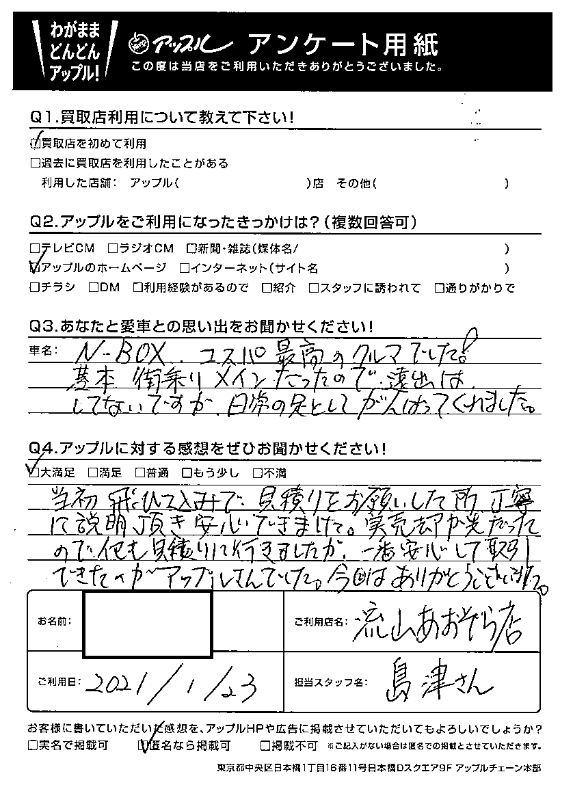 わがまま
どんどん
アップル!
アップル アンケート用紙
この度は当店をご利用いただきありがとうございました。
Q1.買取店利用について教えて下さい!
☑買取店を初めて利用
□過去に買取店を利用したことがある
利用した店舗: アップル( )店 その他( )
Q2.アップルをご利用になったきっかけは?(複数回答可)
□テレビCM □ラジオCM □新聞・雑誌(媒体名/ )
☑アップルのホームページ □インターネット(サイト名 )
□チラシ □DM □利用経験があるので □紹介 □スタッフに誘われて □通りがかりで
Q3.あなたと愛車との思い出をお聞かせください!
車名: N-BOX.. コスパ最高のクルマでした!
基本 街乗りメインだったので、遠出は
してないですが、日常の足としてがんばってくれました。
Q4.アップルに対する感想をぜひお聞かせください!
☑大満足 □満足 □普通 □もう少し □不満
当初 飛びこみで、見積りをお願いした所 丁寧
に説明頂き安心できました。実売却が先だった
ので、他も見積りに行きましたが、一番安心して取引
できたのがアップルさんでした。今回はありがとうございました。
お名前: ご利用店名: 流山あおぞら店
ご利用日: 2021/1/23 担当スタッフ名: 島津さん
お客様に書いていただいた感想を、アップルHPや広告に掲載させていただいてもよろしいでしょうか?
□実名で掲載可 ☑匿名なら掲載可 □掲載不可 ※ご記入がない場合は匿名での掲載とさせていただきます。
東京都中央区日本橋1丁目16番11号日本橋Dスクエア9F アップルチェーン本部